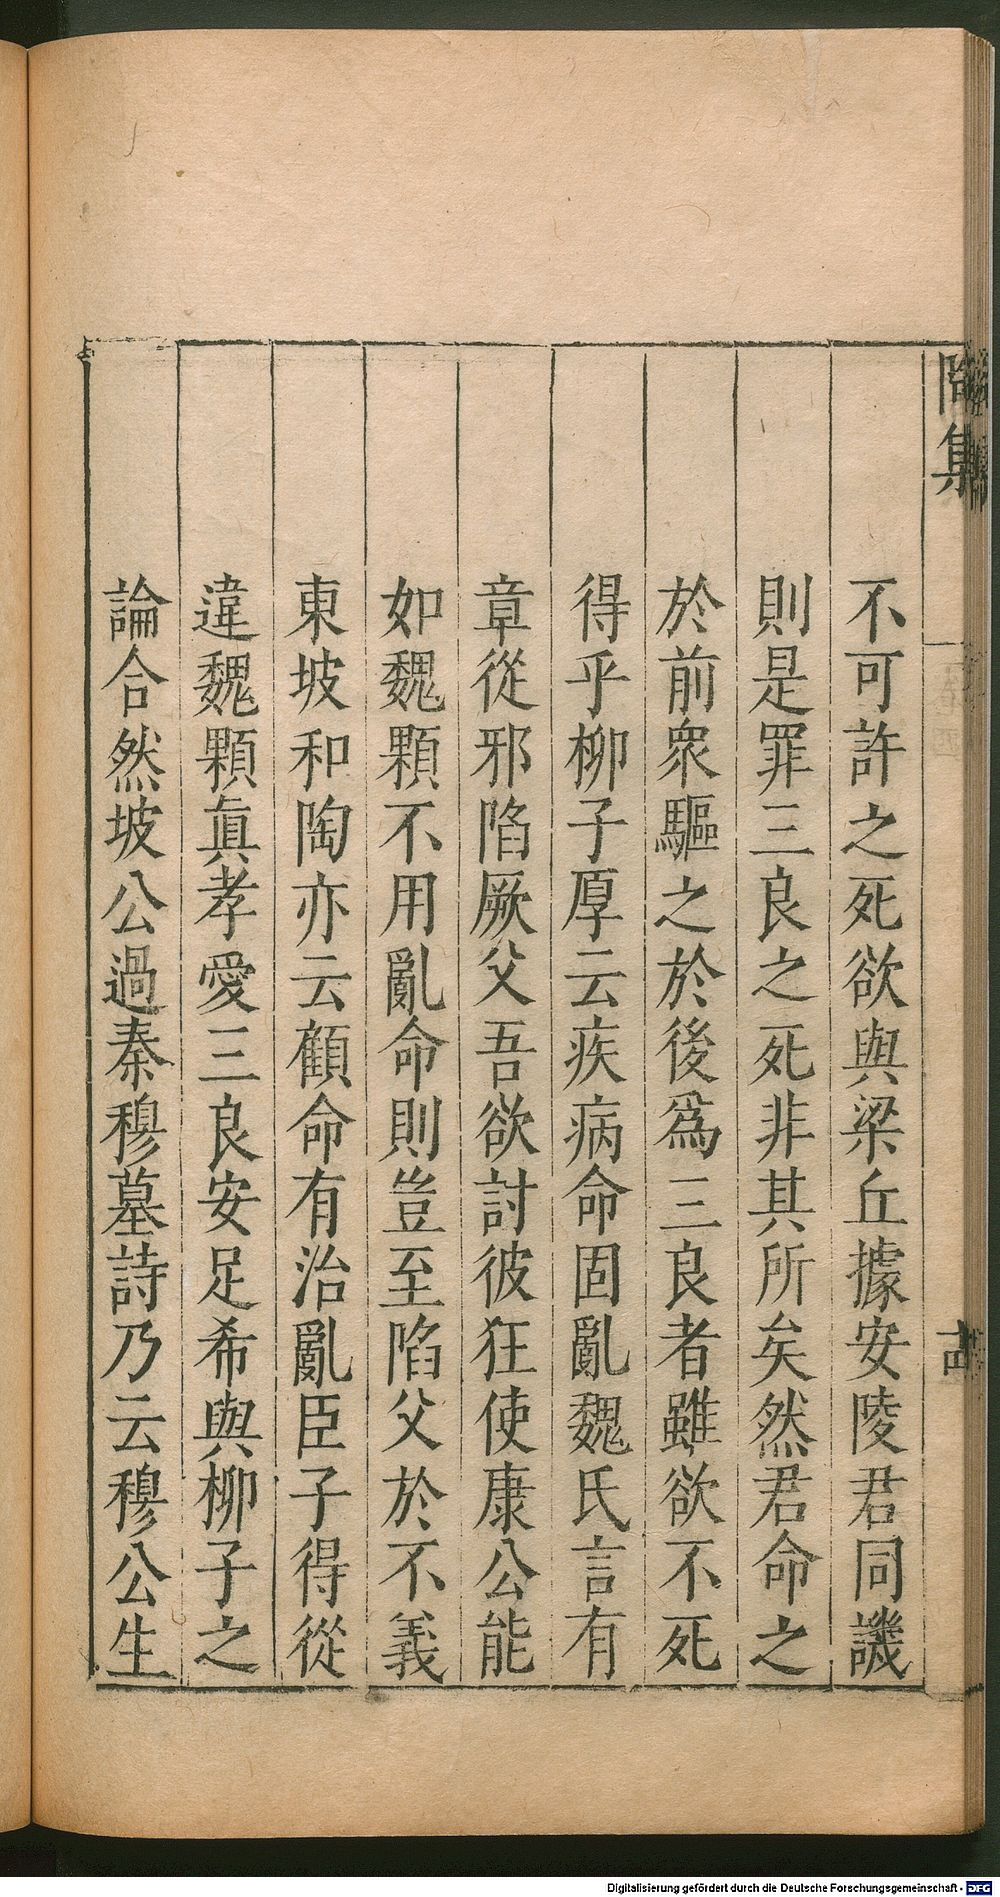 陶集
不可許之死欲與梁丘據安陵君同譏
則是罪三良之死非其所矣然君命之
於前衆驅之於後爲三良者雖欲不死
得乎柳子厚云疾病命固亂魏氏言有
章從邪陷厥父吾欲討彼狂使康公能
如魏顆不用亂命則豈至陷父於不義
東坡和陶亦云顧命有治亂臣子得從
違魏顆眞孝愛三良安足希與柳子之
論合然坡公過秦穆墓詩乃云穆公生
Digitalisierung gefördert durch die Deutsche Forschungsgemeinschaft - DFG